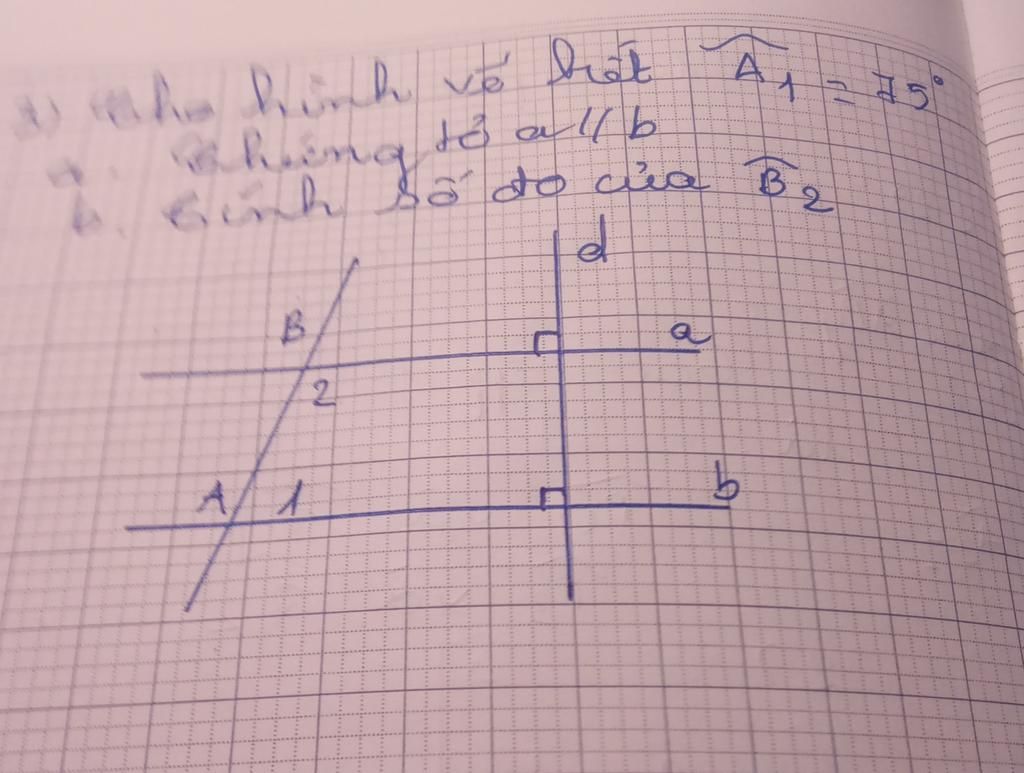 cho hình vẽ biết Â1 = 75°
a. Chứng tỏ a // b
b. tính số đo của B̂2
d
B
a
2
A 1
b